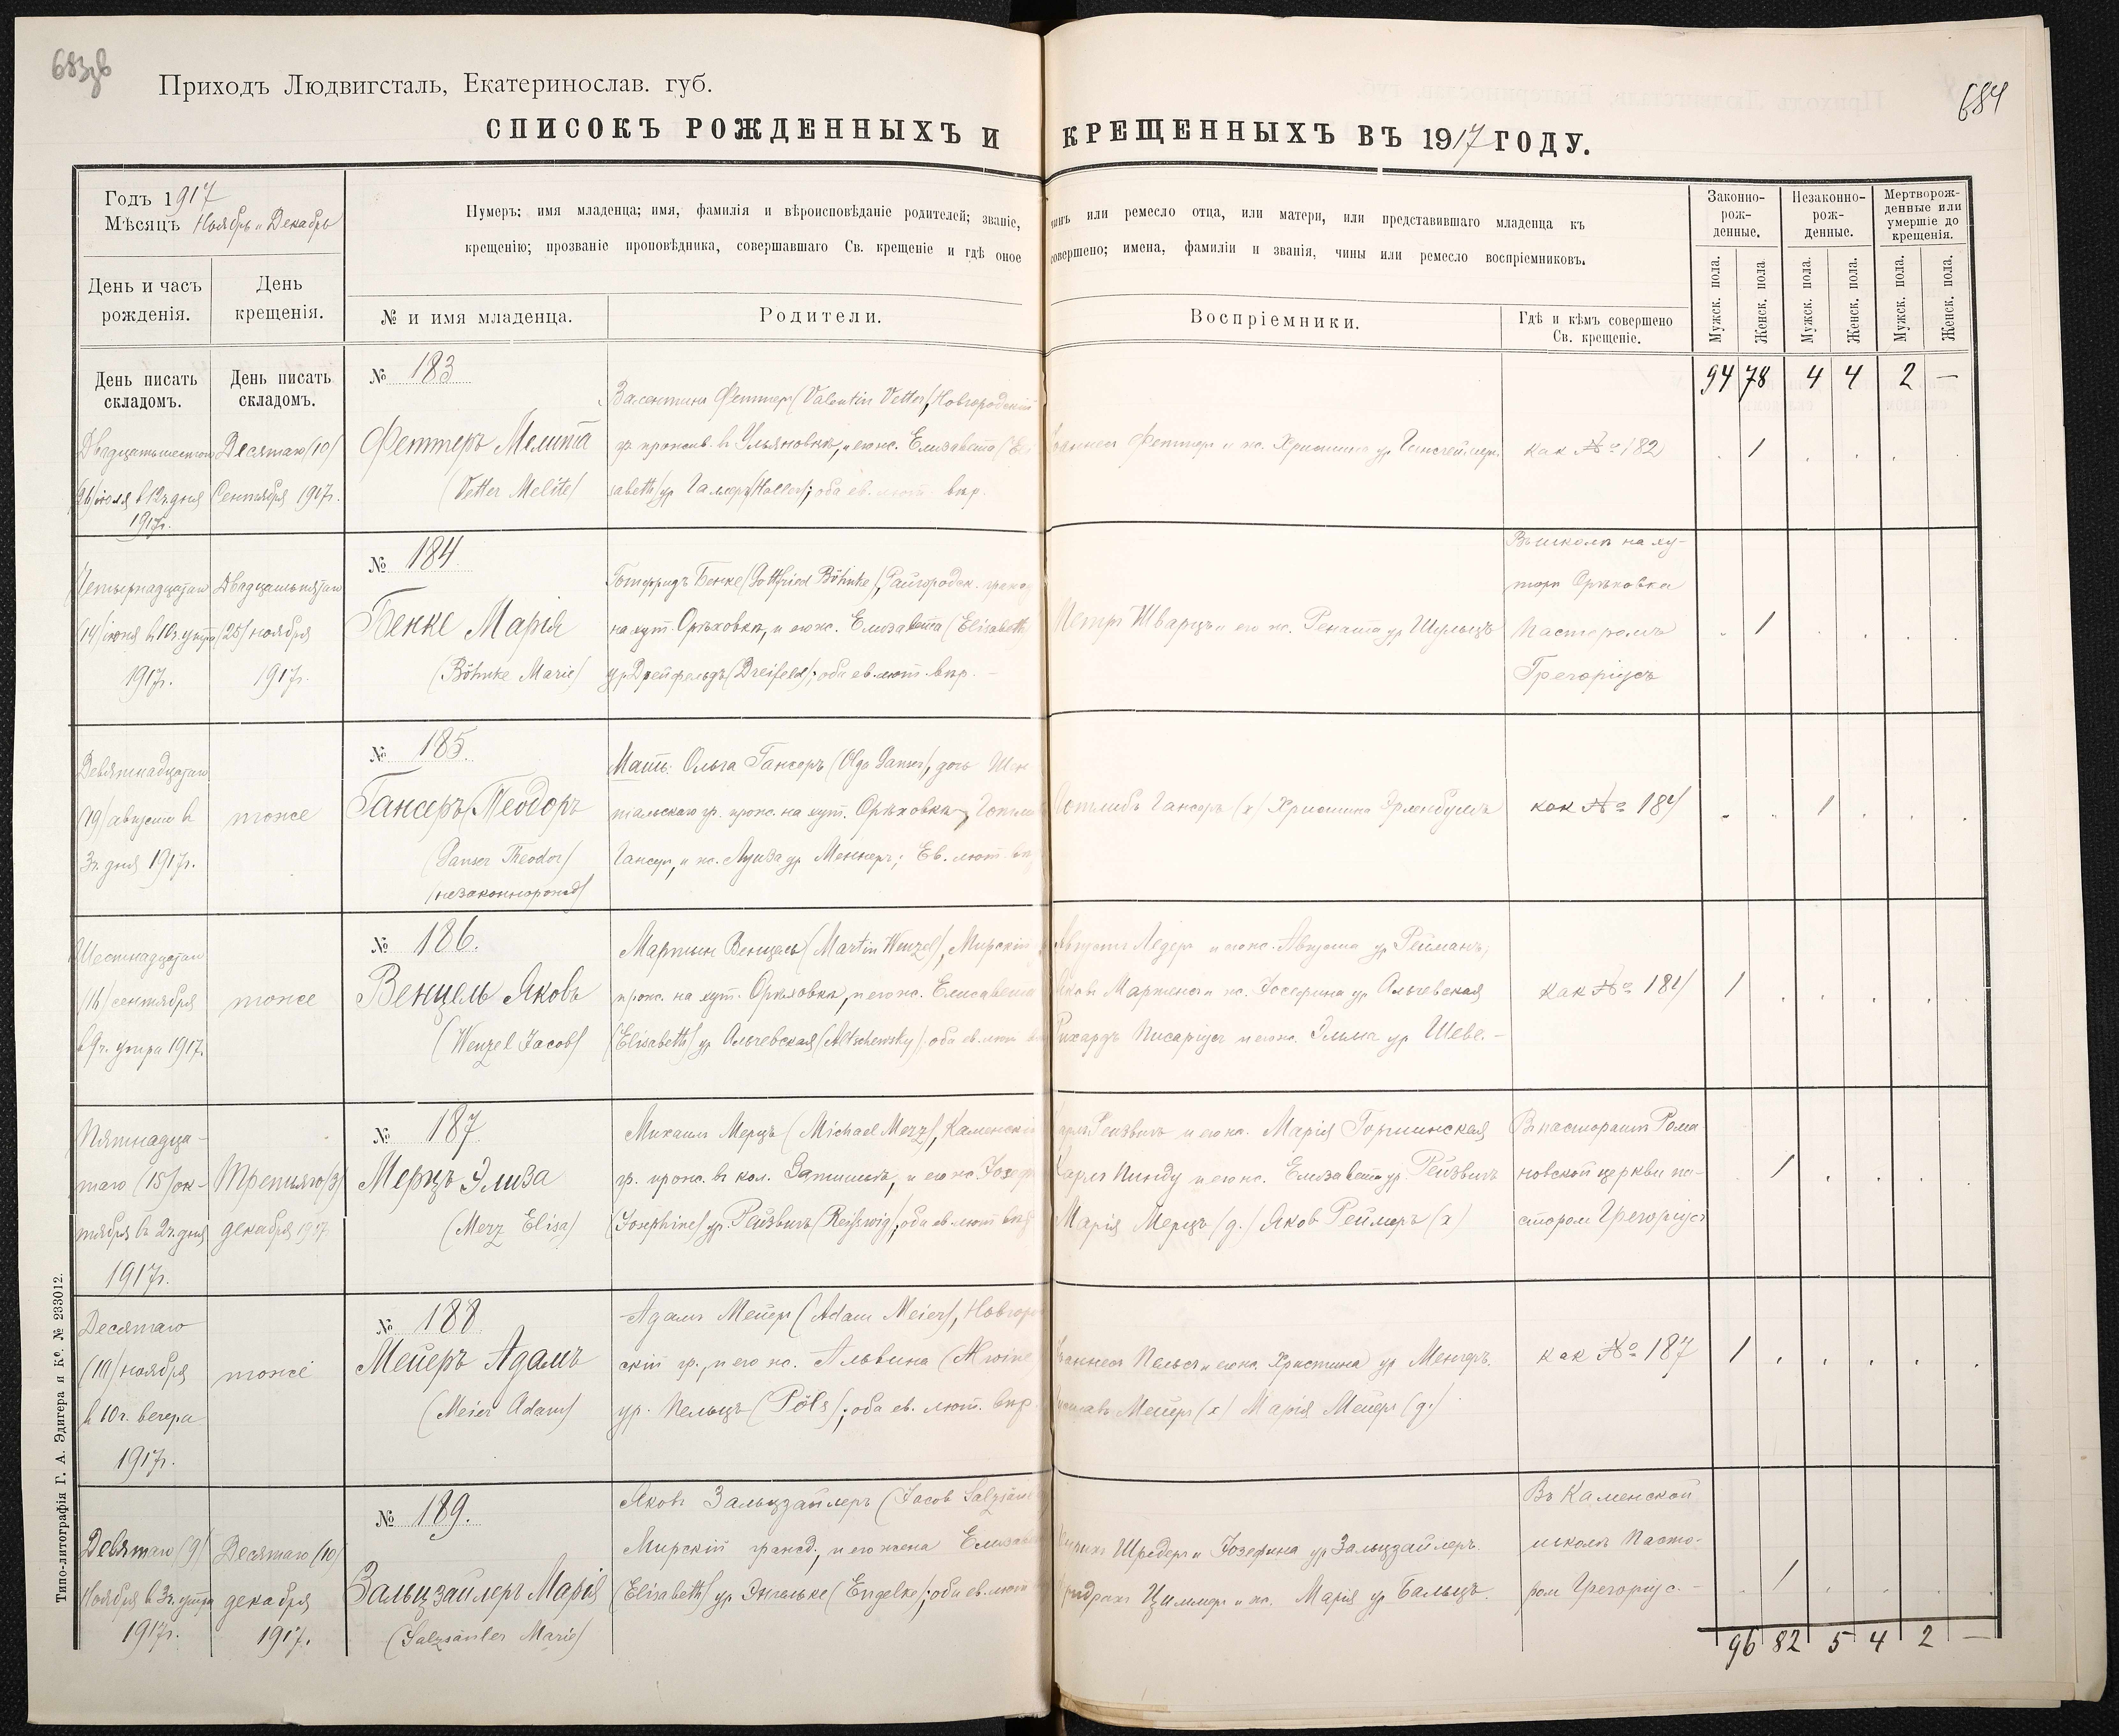 683зв
684
Приходъ Людвигсталь, Екатеринослав. губ.
СПИСОКЪ РОЖДЕННЫХЪ И КРЕЩЕННЫХЪ ВЪ 1917 ГОДУ.
Годъ 1917
Мѣсяцъ Ноябрь и Декабрь
Нумеръ; имя младенца; имя, фамилія и вѣроисповѣданіе родителей; званіе, чинъ или ремесло отца, или матери, или представившаго младенца къ
крещенію; прозваніе проповѣдника, совершавшаго Св. крещеніе и гдѣ оное совершено; имена, фамиліи и званія, чины или ремесло воспріемниковъ.
Законно-
рож-
денные.
Незаконно-
рож-
денные.
Мертворож-
денные или
умершіе до
крещенія.
День и часъ
рожденія.
День
крещенія.
№ и имя младенца.
Родители.
Воспріемники.
Гдѣ и кѣмъ совершено
Св. крещеніе.
Мужск. пола.
Женск. пола.
Мужск. пола.
Женск. пола.
Мужск. пола.
Женск. пола.
День писать
складомъ.
День писать
складомъ.
94 78 4 4 2 —
№ 183
Двадцатьшестого
(26) іюля в 12 ч. дня
1917г.
Десятаго (10)
Сентября 1917г.
Феттеръ Мелита
(Vetter Melite)
Феттеръ (Valentin Vetter), Новгородскій
гр. прожив. в Ульяновкѣ, и его ж. Елизавета (Eli
sabeth) ур Галлеръ (Haller); оба ев. лют. вѣр.
Феттеръ и ж. Христина ур
как № 182
1
№ 184
Четырнадцатаго
(14) іюня в 10 ч. утра
1917г.
Двадцатьпятаго
(25) ноября
1917г.
Бенке Марія
(Böhnke Marie)
Готфридъ Бенке (Gottfried Böhnke),
на хут. Орѣховка, и его ж. Елизавета (Elisabeth)
ур Дрейфельдъ (Dreifeld); оба ев. лют. вѣр. —
Петръ Шварцъ и его ж. Рената ур Шульцъ
Въ школѣ на ху-
торѣ Орѣховка
Пасторомъ
Грегоріусъ
1
№ 185.
Девятнадцатаго
(19) августа в
3 ч. дня 1917г.
тоже
Гансеръ Теодоръ
(Ganser Theodor)
(незаконнорожд)
Мать: Ольга Гансеръ (Olga Ganser), дочь
тальскаго гр. прож. на хут. Орѣховка,
Гансеръ, и ж. Луиза ур Меннеръ; Ев. лют. вѣр
Готлибъ Гансеръ (х) Христина
как № 184
1
№ 186.
Шестнадцатаго
(16) сентября
в 9 ч. утра 1917г.
тоже
Венцель Яковъ
(Wenzel Jacob)
Мартынъ Венцель (Martin Wenzel), Мирскій
прож. на хут. Орѣховка, и его ж. Елисавета
(Elisabeth) ур Альчевская (Altschewsky) оба ев. лют.
Августъ Ледеръ и его ж. Августа ур Рейманъ,
Яковъ Мартенсъ и ж. Іосефина ур Альчевская
Рихардъ Писаріусъ и его ж. Эльма ур Шеве. —
как № 184
1
№ 187
Пятнадца-
таго (15) ок-
тября в 2 ч. дня
1917г.
Третьяго (3)
декабря 1917
Мерцъ Элиза
(Merz Elisa)
Михаилъ Мерцъ (Michael Merz), Каменскій
гр. прож. в кол. Затишье, и его ж. Іозеф
(Josephine) ур. Рейзвигъ (Reißwig); оба ев. лют. вѣр
Карлъ Рейзвигъ и его ж. Марія
Карлъ Пинду и его ж. Елизавета ур Рейзвигъ
Марія Мерцъ (д.) Яков Реймеръ (х)
Въ пасторатѣ Рома
новской церкви па-
сторомъ Грегоріусъ
1
№ 188
Десятаго
(10) ноября
в 10 ч. вечера
1917г.
тоже
Мейеръ Адамъ
(Meier Adam)
Адамъ Мейеръ (Adam Meier), Новгород
скій гр., и его ж. Альвина (Alwine)
ур. Пельцъ (Pöls); оба ев. лют. вѣр.
Пельсъ и его ж. Христина ур
Мейеръ (х) Марія Мейеръ (д.)
как № 187
1
№ 189.
Девятаго (9)
Ноября в 3 ч. утра
1917г.
Десятаго (10)
декабря
1917.
Зальцзайлеръ Марія
(Salzsäuler Marie)
Яковъ Зальцзайлеръ (Jacob Salzsäuler
Мирскій гражд., и его жена Елизавета
(Elisabeth) ур Энгельке (Engelke); оба ев. лют
Шредеръ и Іозефина ур Зальцзайлеръ.
Циммеръ и ж. Марія ур Бальцъ.
Въ Каменской
школѣ Пасто-
ромъ Грегоріус. —
1
96 82 5 4 2 —
Типо-литографія Г. А. Эдигера и Ко. № 233012.